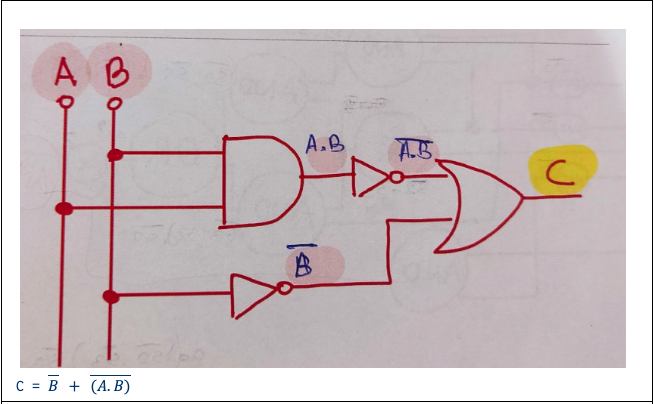 A B
A.B
A̅.̅B̅
C
B̅
C = B̅ + (̅A̅.̅B̅)̅